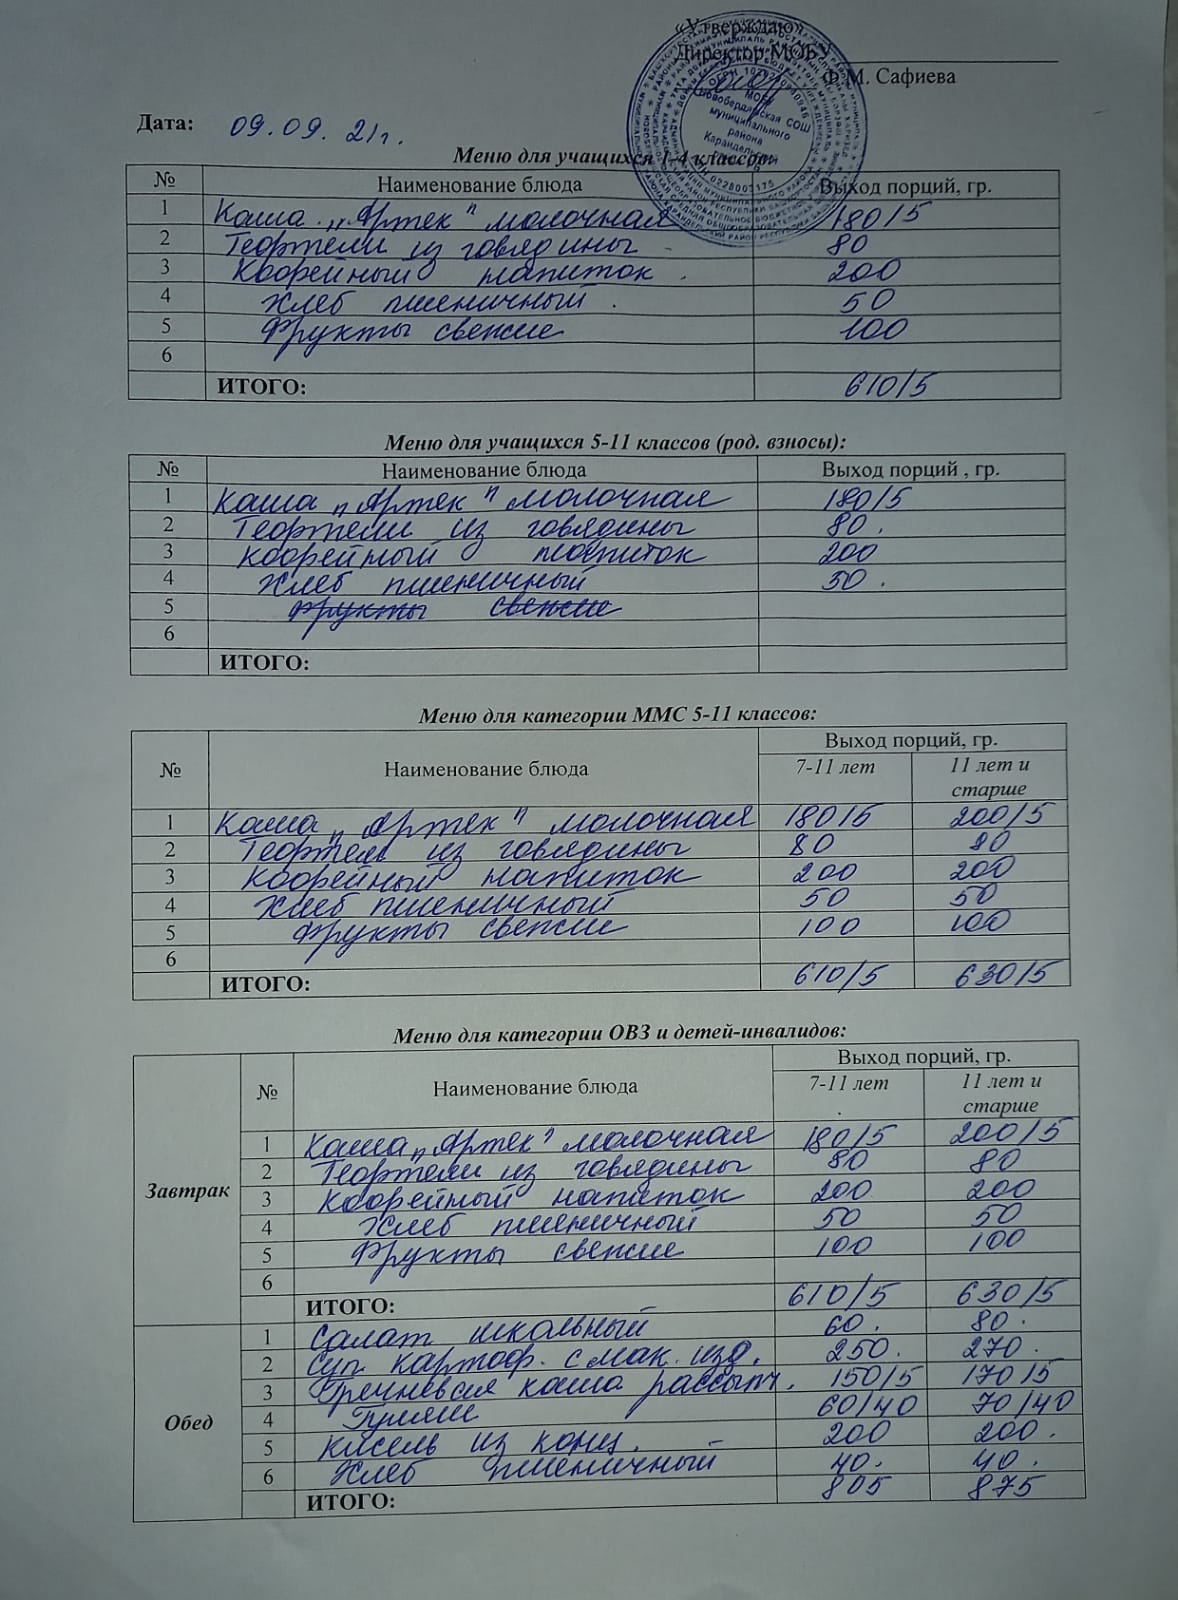 «Утверждаю»
Директор МОБУ
Ф.М. Сафиева
МОБУ
Новобердяшская СОШ
муниципального
района
Караидельский
район РБ
Дата: 09.09.21г.
Меню для учащихся 1-4 классов:
№ Наименование блюда Выход порций, гр.
1 Каша „Артек" молочная 180/5
2 Тефтели из говядины 80
3 Кофейный напиток 200
4 Хлеб пшеничный 50
5 Фрукты свежие 100
6
ИТОГО: 610/5
Меню для учащихся 5-11 классов (род. взносы):
№ Наименование блюда Выход порций , гр.
1 Каша „Артек" молочная 180/5
2 Тефтели из говядины 80.
3 Кофейный напиток 200
4 Хлеб пшеничный 50.
5 Фрукты свежие
6
ИТОГО:
Меню для категории ММС 5-11 классов:
№ Наименование блюда Выход порций, гр.
7-11 лет 11 лет и старше
1 Каша „Артек" молочная 180/5 200/5
2 Тефтель из говядины 80 80
3 Кофейный напиток 200 200
4 Хлеб пшеничный 50 50
5 Фрукты свежие 100 100
6
ИТОГО: 610/5 630/5
Меню для категории ОВЗ и детей-инвалидов:
№ Наименование блюда Выход порций, гр.
7-11 лет 11 лет и старше
Завтрак
1 Каша „Артек" молочная 180/5 200/5
2 Тефтели из говядины 80 80
3 Кофейный напиток 200 200
4 Хлеб пшеничный 50 50
5 Фрукты свежие 100 100
6
ИТОГО: 610/5 630/5
Обед
1 Салат школьный 60. 80.
2 Суп картоф. с мак. изд. 250. 270.
3 Гречневая каша рассыпч. 150/5 170/5
4 Гуляш 60/40 70/40
5 Кисель из конц. 200 200.
6 Хлеб пшеничный 40. 40.
ИТОГО: 805 875